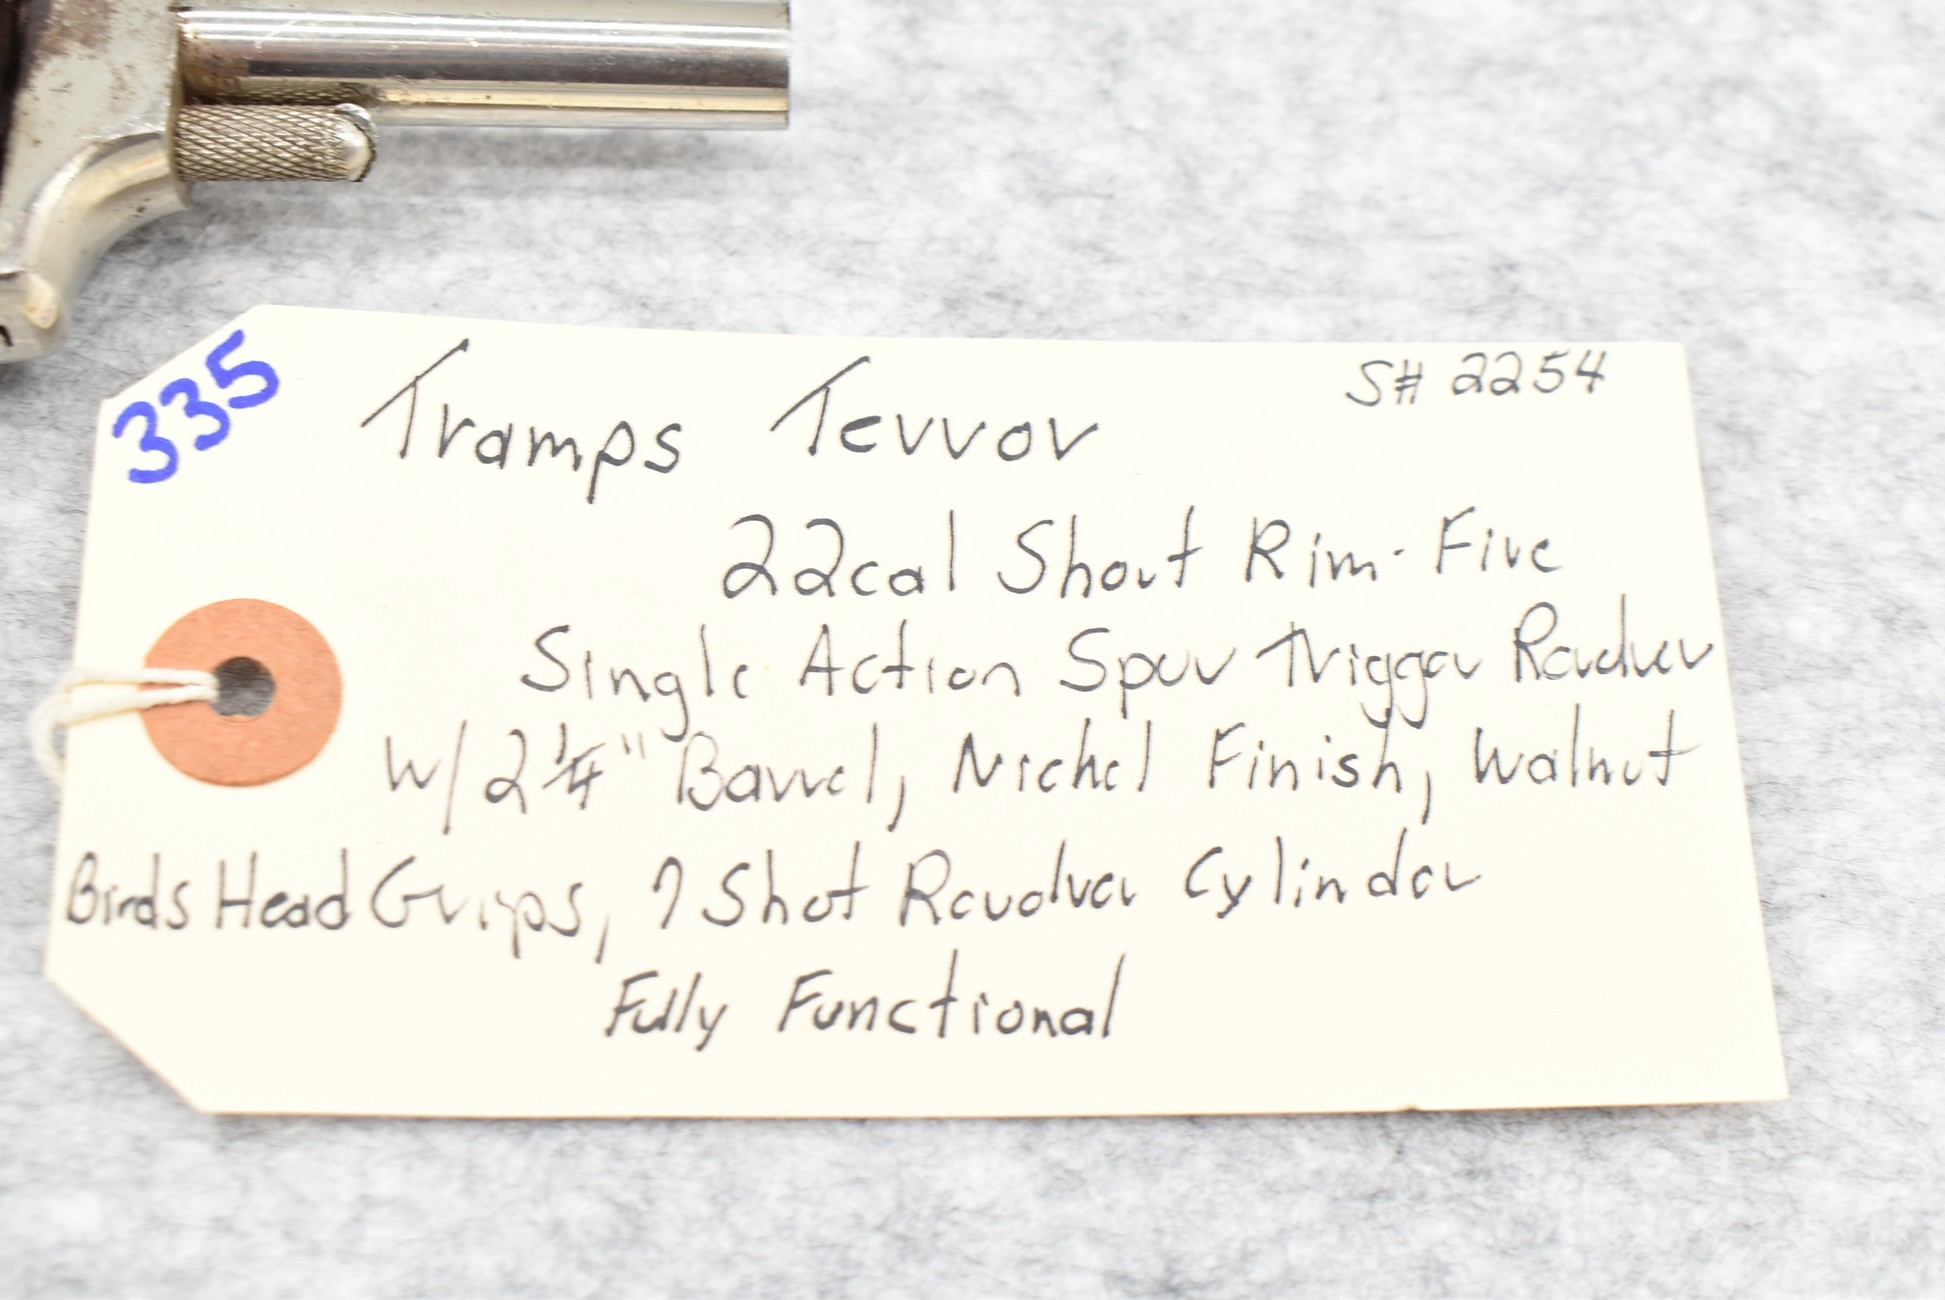 335
S# 2254
Tramps Terror
22cal Short Rim-Fire
Single Action Spur Trigger Revolver
W/ 2 1/4" Barrel, Nickel Finish, Walnut
Birds Head Grips, 7 Shot Revolver Cylinder
Fully Functional